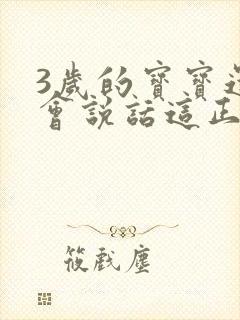 3歲的寶寶還
會說話這正
筱戲塵